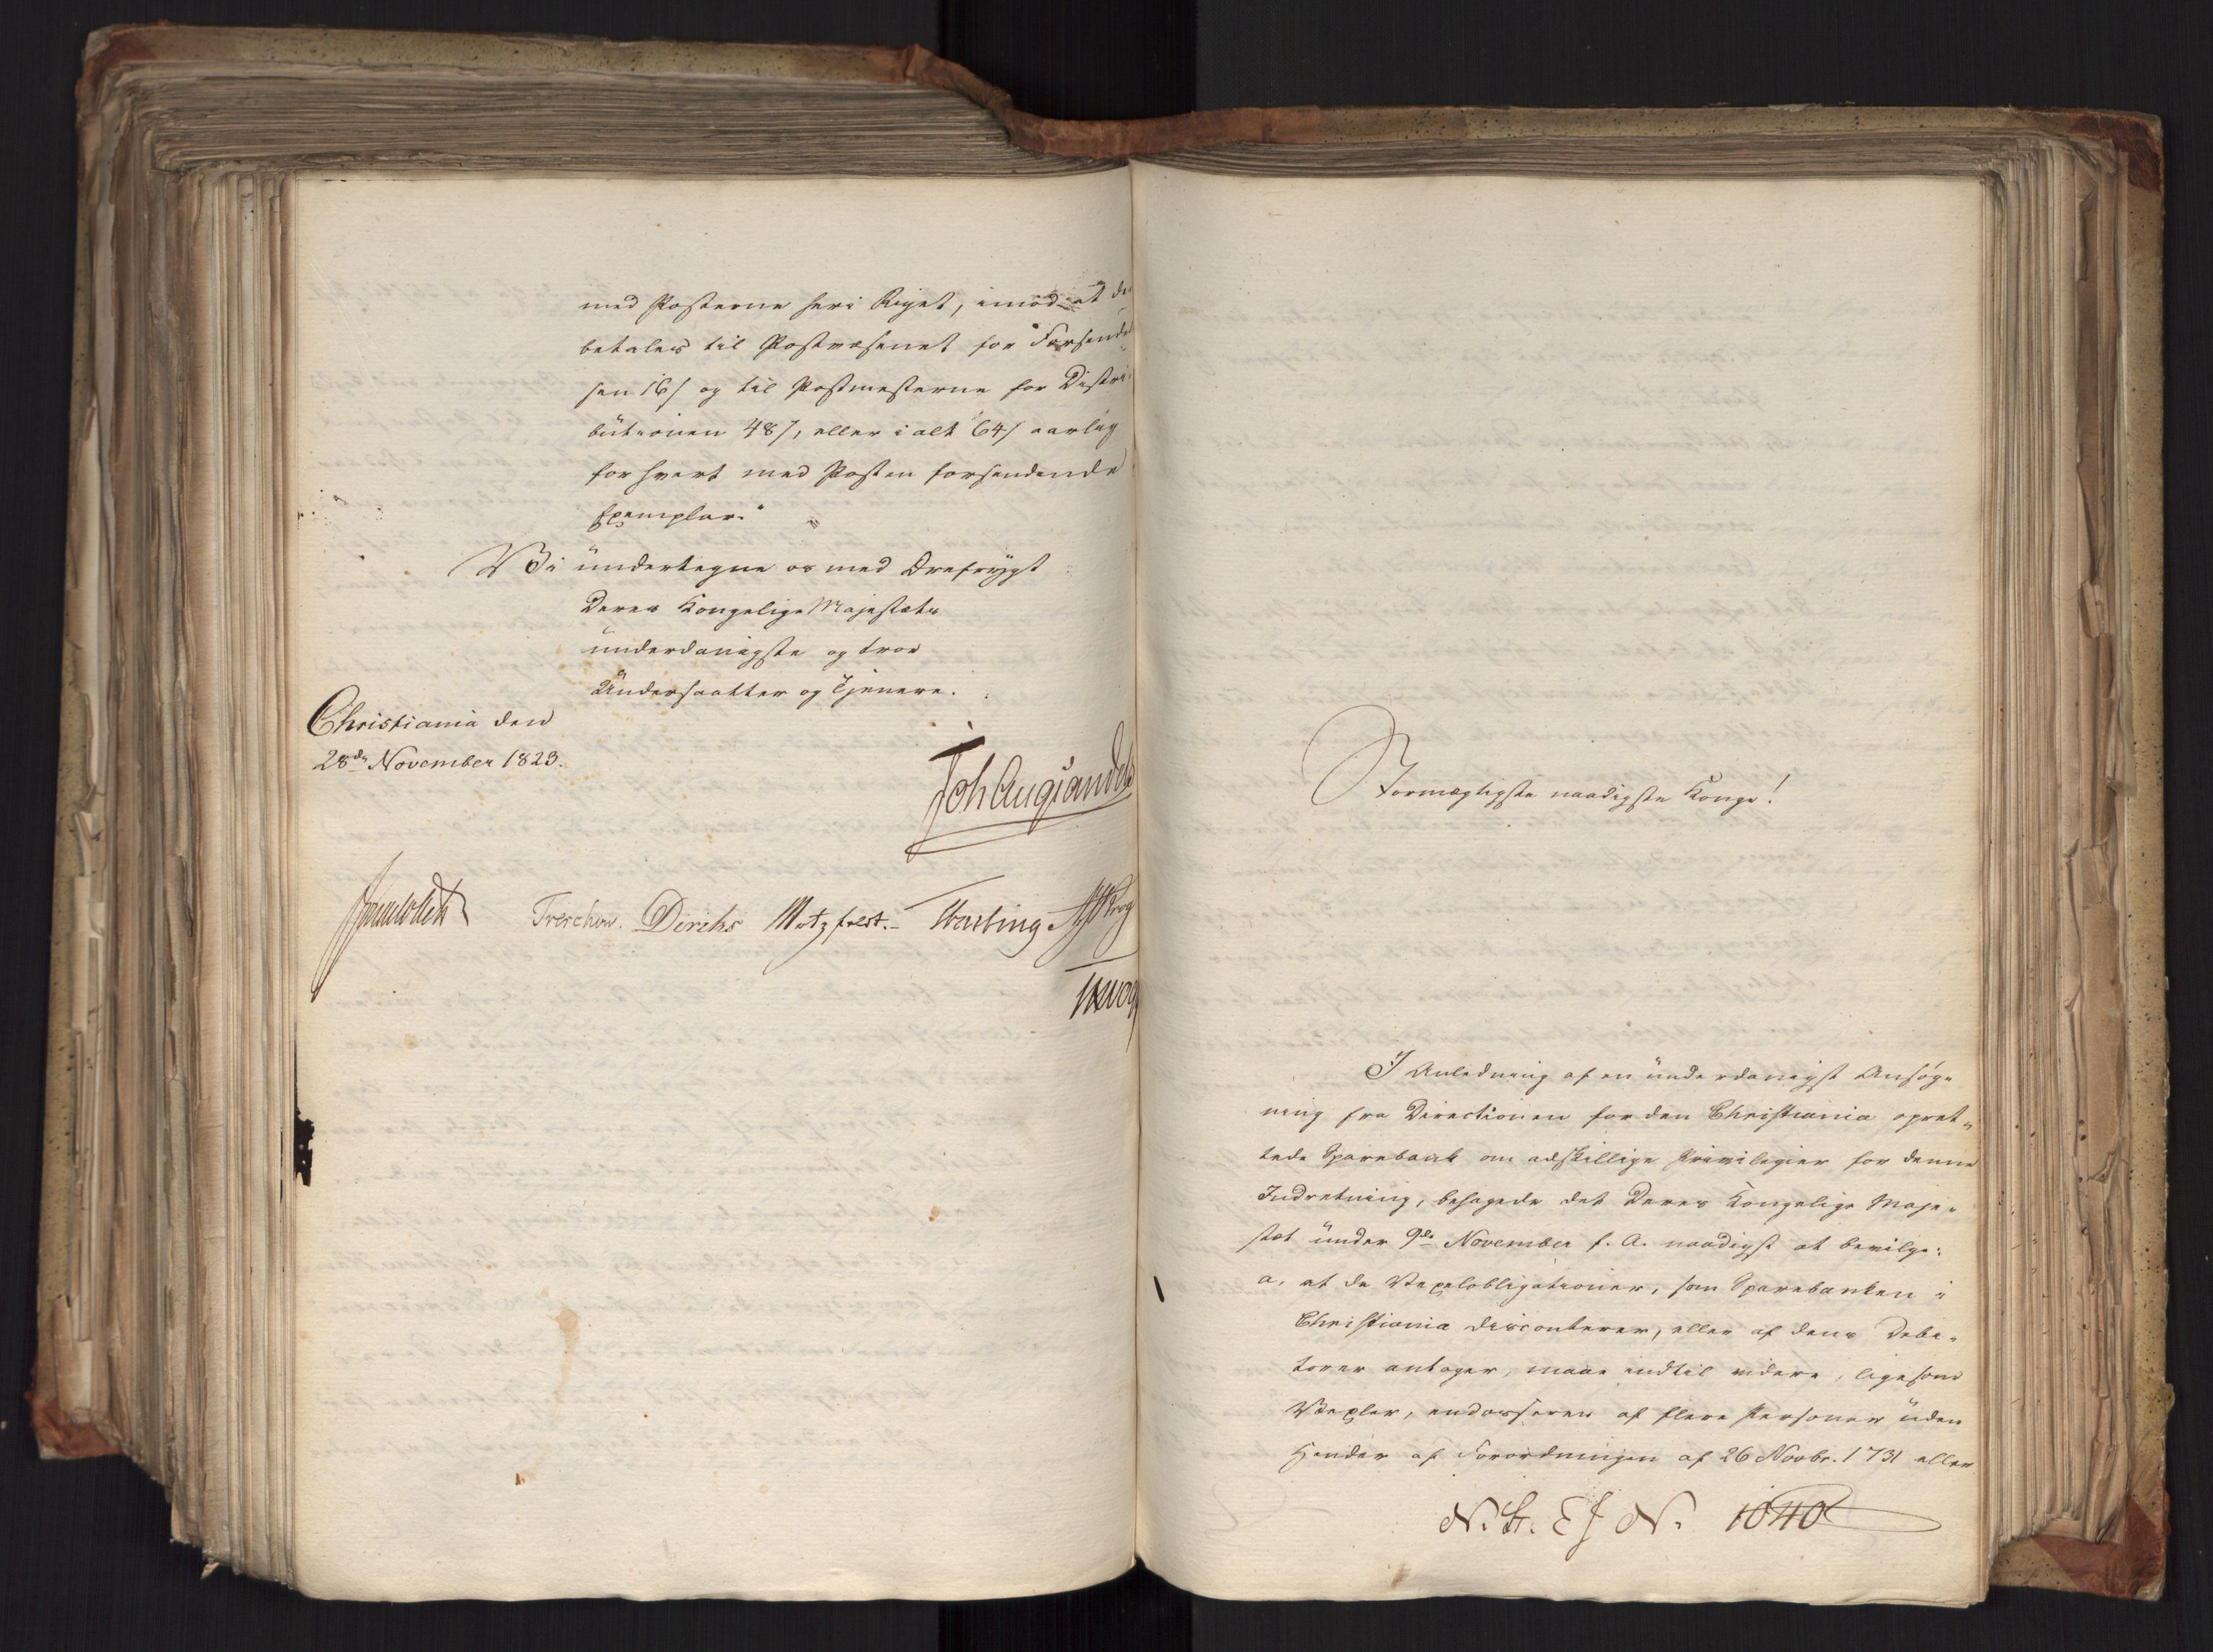 med Posterne her i Riget, imod at der
betales til Postvæsenet for Forsendel
sen 16 s og til Postmesterne for Distri-
butionen 48 s, eller i alt 64 s aarlig
for hvert med Posten forsendende
Exemplar."
Vi undertegne os med Ærefrygt
Deres Kongelige Majestæts
underdanigste og troe
Undersaatter og Tjenere.
Christiania den
28de November 1823.
Joh Aug Sandels
Sommerhielm Treschow. Diriks Motzfeldt.- Fasting
Formægtigste naadigste Konge!
I Anledning af en underdanigst Ansøg-
ning fra Directionen for den Christiania opret-
tede Sparebank om adskillige Privilegier for denne
Indretning, behagede det Deres Kongelige Maje-
stæt under 9de November f. A. naadigst at bevilge:
a, at de Vexelobligationer, som Sparebanken i
Christiania disconterer, eller af dens Debi-
torer antager, maae indtil videre, ligesom
Vexler, endosseres af flere Personer uden
Hinder af Forordningen af 26 Novbr. 1731 eller
N. St. E J N. 1040